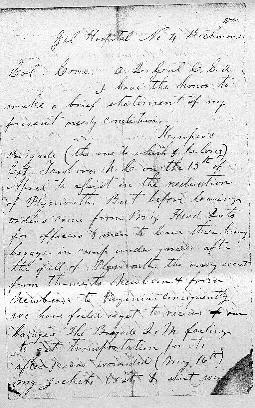 Gel Hospital No 4 Richmond
Col: Corse. A. Q. Gen'l C.S.A.
I have the honor to
make a brief statement of my
present needy condition.
Kemper's
Brigade (the one to which I belong)
left N.C. on the 13th of
April to assist in the reduction
of Plymouth. But before leaving
orders came from Brig Head Qrts
for officers & men to leave their
baggage in camp under guard. after
the fall of Plymouth the army went
from thence to Newbern & from
Newbern to Virginia consequently
we have failed as yet to receive our
baggage. The Brigade Q.M. failing
to get transportation for it.
after I was wounded (May 16th)
my jacket, &